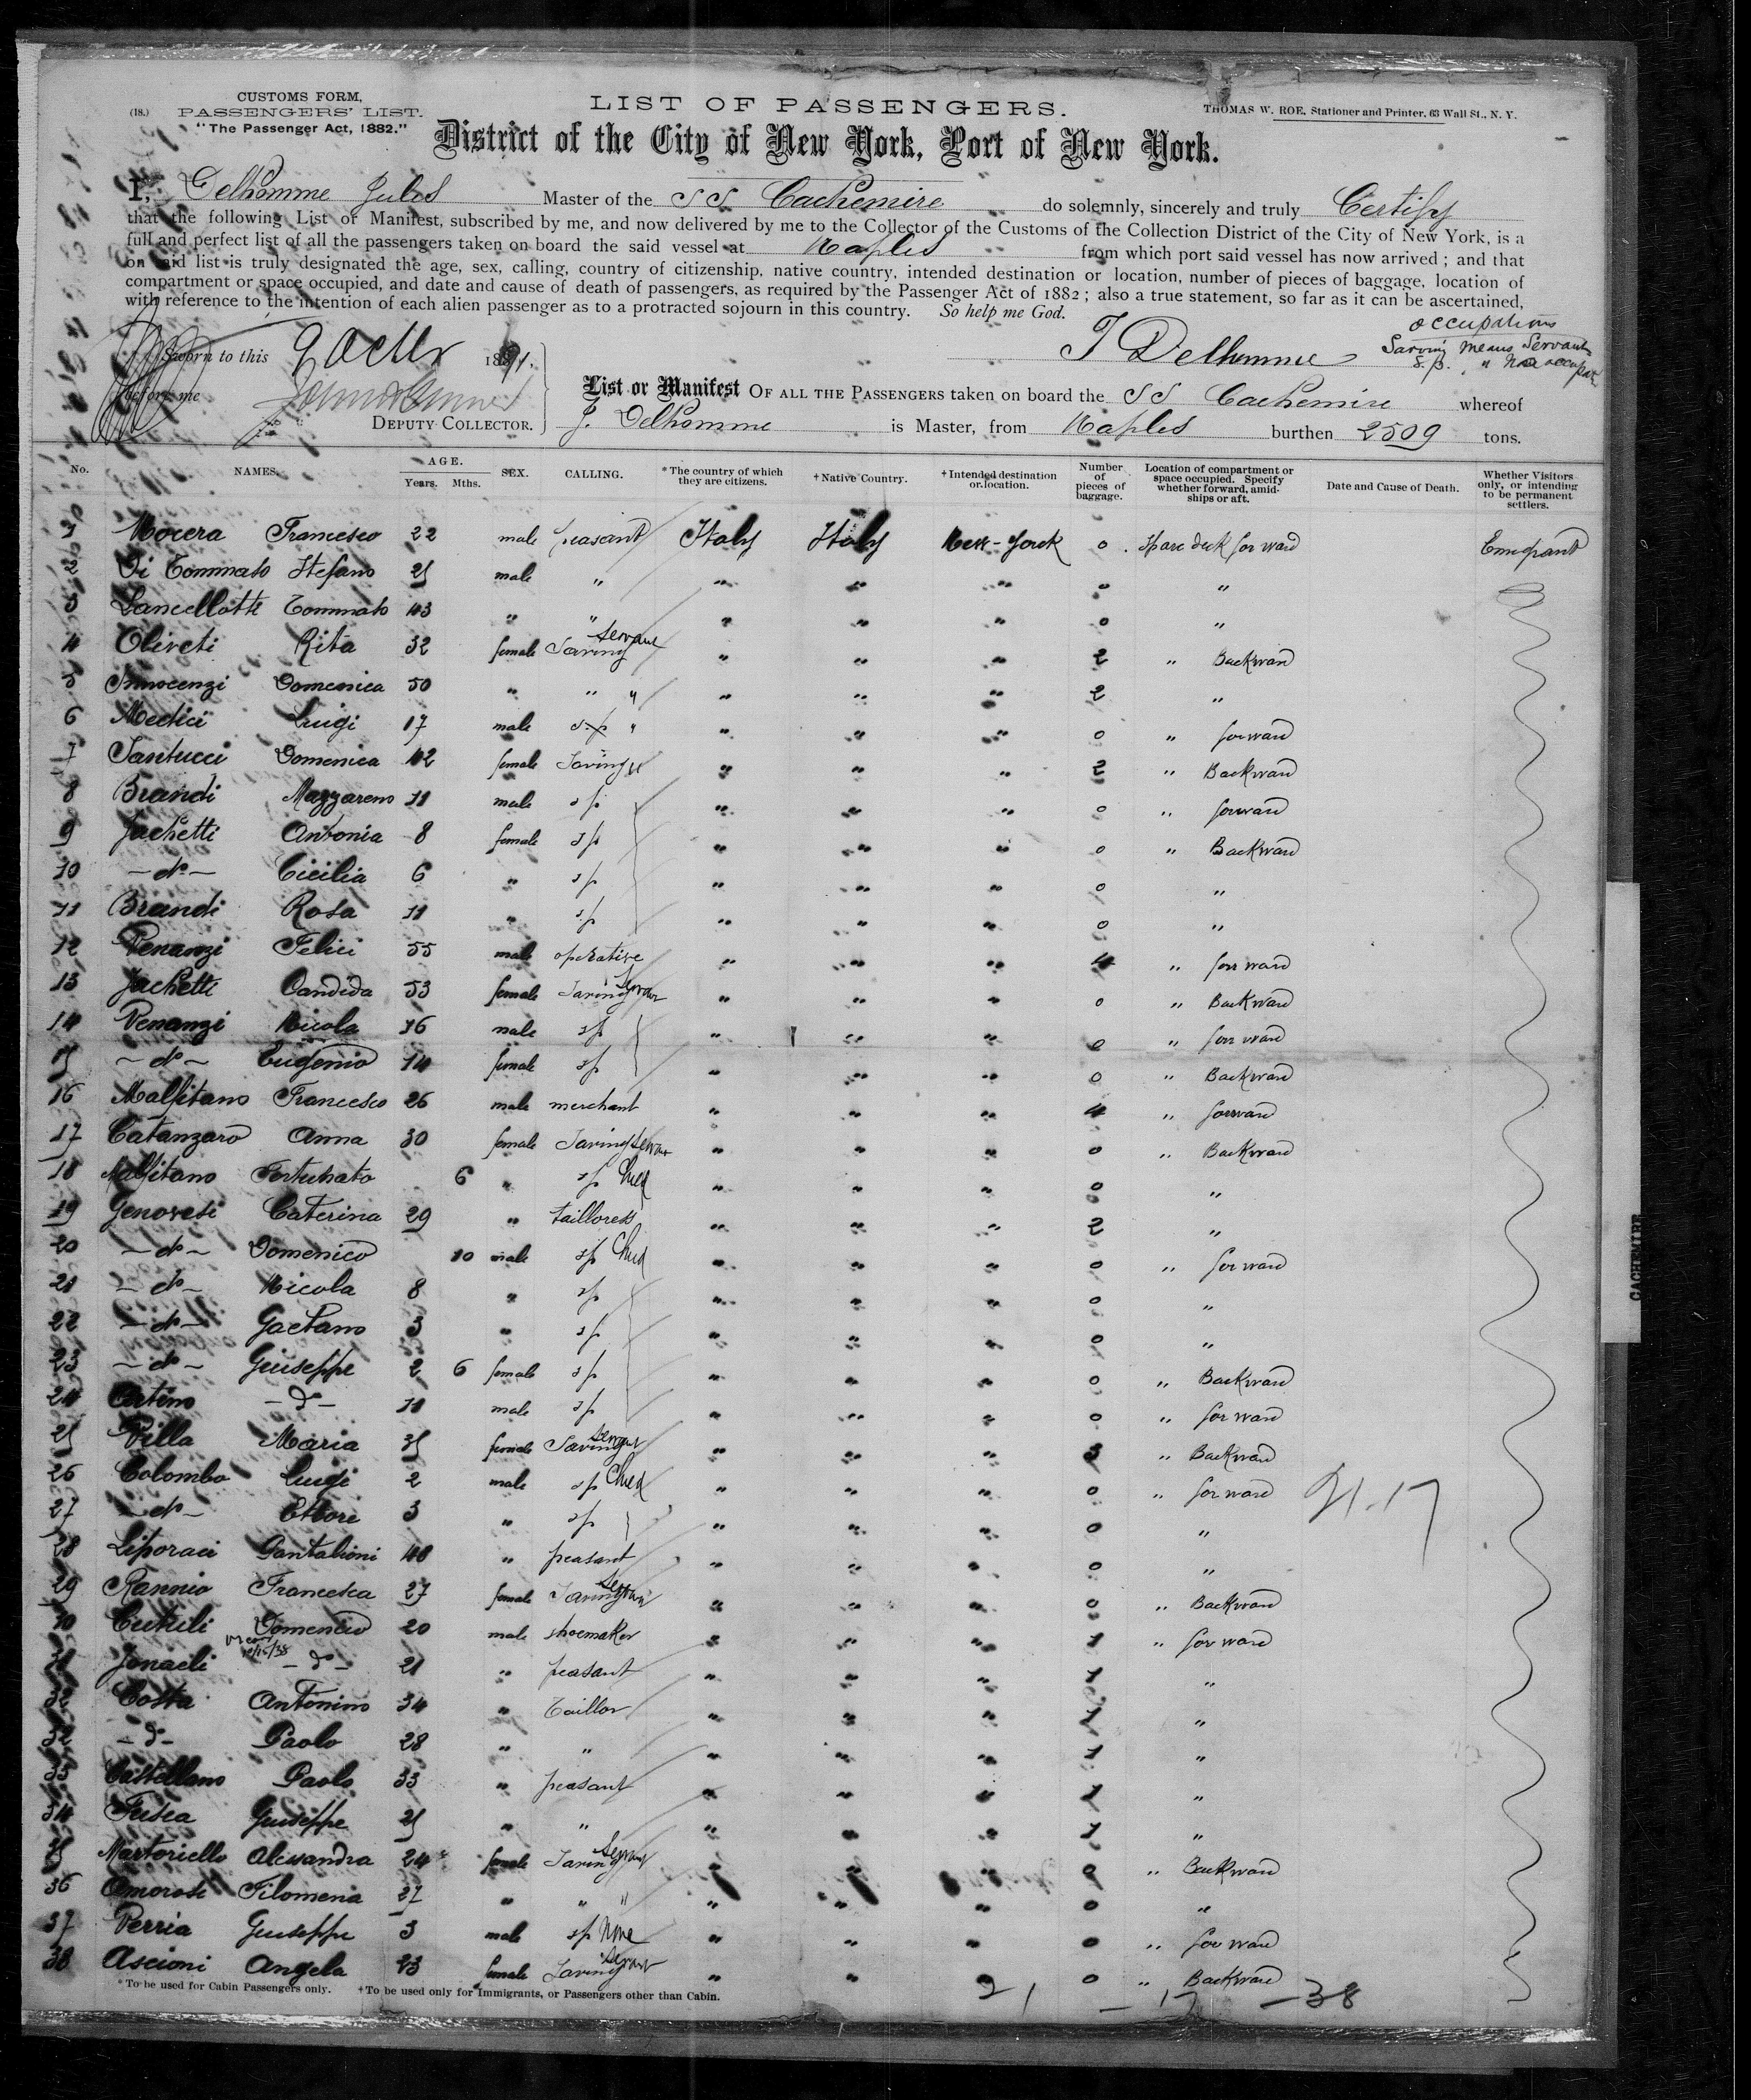 CUSTOMS FORM,
(18.) PASSENGERS' LIST.
"The Passenger Act, 1882."
LIST OF PASSENGERS.
THOMAS W. ROE, Stationer and Printer, 63 Wall St., N. Y.
District of the City of New York, Port of New York.
I, Delhomme Jules Master of the SS Cachemire do solemnly, sincerely and truly Certify
that the following List or Manifest, subscribed by me, and now delivered by me to the Collector of the Customs of the Collection District of the City of New York, is a
full and perfect list of all the passengers taken on board the said vessel at Naples from which port said vessel has now arrived; and that
on said list is truly designated the age, sex, calling, country of citizenship, native country, intended destination or location, number of pieces of baggage, location of
compartment or space occupied, and date and cause of death of passengers, as required by the Passenger Act of 1882; also a true statement, so far as it can be ascertained,
with reference to the intention of each alien passenger as to a protracted sojourn in this country. So help me God.
occupations
Saving means Servant
s.p. " No occupat
Sworn to this 9 Octbr 1891.
J Delhomme
before me
DEPUTY COLLECTOR.
List or Manifest OF ALL THE PASSENGERS taken on board the SS Cachemire whereof
J. Delhomme is Master, from Naples burthen 2509 tons.
No. NAMES. AGE. Years. Mths. SEX. CALLING. *The country of which they are citizens. †Native Country. †Intended destination or location. Number of pieces of baggage. Location of compartment or space occupied. Specify whether forward, amidships or aft. Date and Cause of Death. Whether Visitors only, or intending to be permanent settlers.
1 Mocera Francesco 22 male peasant Italy Italy New-Yorck 0 Spare deck forward Emigrant
2 Di Tommaso Stefano 25 male " " " " 0 "
3 Lancellotti Tommaso 43 " " " " " 0 "
4 Oliveti Rita 32 female Saving servant " " " 2 " Backward
5 Innocenzi Domenica 50 " " " " " " 2 "
6 Medici Luigi 17 male sp " " " " 0 " forward
7 Santucci Domenica 42 female Saving " " " " 2 " Backward
8 Brandi Nazzareno 11 male sp " " " 0 " forward
9 Jachetti Antonia 8 female sp " " " 0 " Backward
10 -do- Cicilia 6 " sp " " " 0 "
11 Brandi Rosa 11 " sp " " " 0 "
12 Venanzi Felici 55 male operative " " " 4 " forward
13 Jachetti Candida 53 female Saving servant " " " 0 " Backward
14 Venanzi Nicola 16 male sp " " " 0 " forward
15 -do- Eugenio 14 female sp " " " 0 " Backward
16 Malfitano Francesco 26 male merchant " " " 4 " forward
17 Catanzaro Anna 30 female Saving servant " " " 0 " Backward
18 Malfitano Fortunato 6 " sp Child " " " 0 "
19 Genovesi Caterina 29 " tailloress " " " 2 "
20 -do- Domenico 10 male sp Child " " " 0 " forward
21 -do- Nicola 8 " sp " " " 0 "
22 -do- Gaetano 3 " sp " " " 0 "
23 -do- Giuseppe 2 6 female sp " " " 0 " Backward
24 -do- 11 male sp " " " 0 " forward
25 Villa Maria 35 female Saving servant " " " 3 " Backward
26 Colombo Luigi 2 male sp Child " " " 0 " forward 21-17
27 -do- Ettore 3 " sp " " " 0 "
28 Liporaci Gantalioni 48 " peasant " " " 0 "
29 Rannio Francesca 27 female Saving servant " " " 0 " Backward
30 Cutuli Domenico 20 male shoemaker " " " 1 " forward
31 Jonaeli -do- 21 " peasant " " " 1 "
32 Costa Antonino 34 " Taillor " " " 1 "
32 -do- Paolo 28 " " " " " 1 "
33 Castellano Paolo 33 " peasant " " " 1 "
34 Fusca Giuseppe 25 " " " " " 1 "
35 Martoriello Alessandra 24 female Saving servant " " " 0 " Backward
36 Amorosi Filomena 37 " " " " " " 0 "
37 Perria Giuseppe 3 male sp None " " " 0 " forward
38 Ascioni Angela 23 female Saving servant " " " 0 " Backward
*To be used for Cabin Passengers only. †To be used only for Immigrants, or Passengers other than Cabin.
21 - 17 - 38
CACHEMIRE